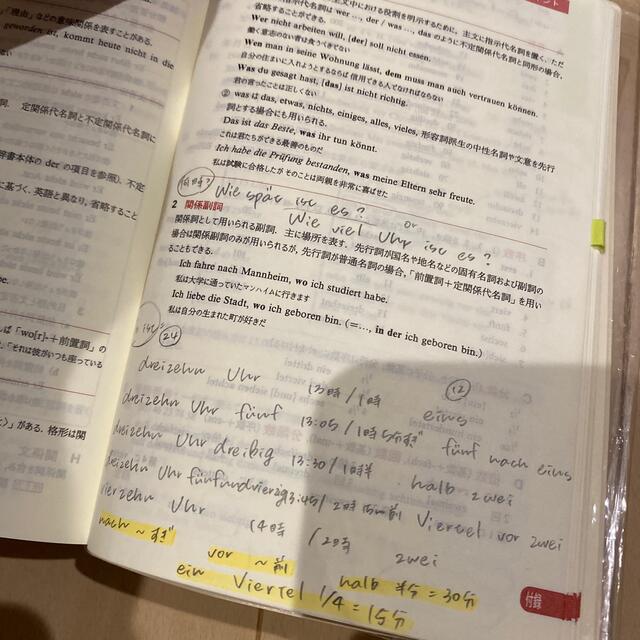 「理由」などの意味関係を表すことがある.
geworden ist, kommt heute nicht in die
詞. 定関係代名詞と不定関係代名詞に
辞書本体の der の項目を参照), 不定
に基づく. 英語と異なり, 省略すること
しば「wo[r]-+前置詞」の
「それは彼がいつも座っている
がある. 格形は関
主文中における役割を明示するために, 主文に指示代名詞を置く. ただ
し指示代名詞が wer …, der / was …, das のように不定関係代名詞と同形の場合,
省略することができる.
Wer nicht arbeiten will, [der] soll nicht essen.
働く意志のない者は食うべきでない
Wen man in seine Wohnung lässt, dem muss man auch vertrauen können.
自分の住まいに入れようとするならば信用できる人でなければならない
Was du gesagt hast, [das] ist nicht richtig.
君の言ったことは正しくない
② was は das, etwas, nichts, einiges, alles, vieles, 形容詞派生の中性名詞や文意を先行
詞とする場合にも用いられる.
Das ist das Beste, was ihr tun könnt.
これは君たちができる最善のものだ
Ich habe die Prüfung bestanden, was meine Eltern sehr freute.
私は試験に合格したがそのことは両親を非常に喜ばせた
何時? Wie spät ist es? or
Wie viel Uhr ist es?
2 関係副詞
関係詞として用いられる副詞. 主に場所を表す. 先行詞が国名や地名などの固有名詞および副詞の
場合は関係副詞のみが用いられるが, 先行詞が普通名詞の場合, 「前置詞+定関係代名詞」を用い
ることもできる.
Ich fahre nach Mannheim, wo ich studiert habe.
私は大学に通っていたマンハイムに行きます
Ich liebe die Stadt, wo ich geboren bin. (=…, in der ich geboren bin.)
私は自分の生まれた町が好きだ
ist= 24 12
dreizehn Uhr 13時/1時 eins
dreizehn Uhr fünf 13:05/1時5分すぎ fünf nach eins
dreizehn Uhr dreißig 13:30/1時半 halb zwei
dreizehn Uhr fünfundvierzig 13:45/2時15分前 Viertel vor zwei
vierzehn Uhr 14時/2時 zwei
nach ~すぎ
vor ~前 halb 半分=30分
ein Viertel 1/4=15分
付録